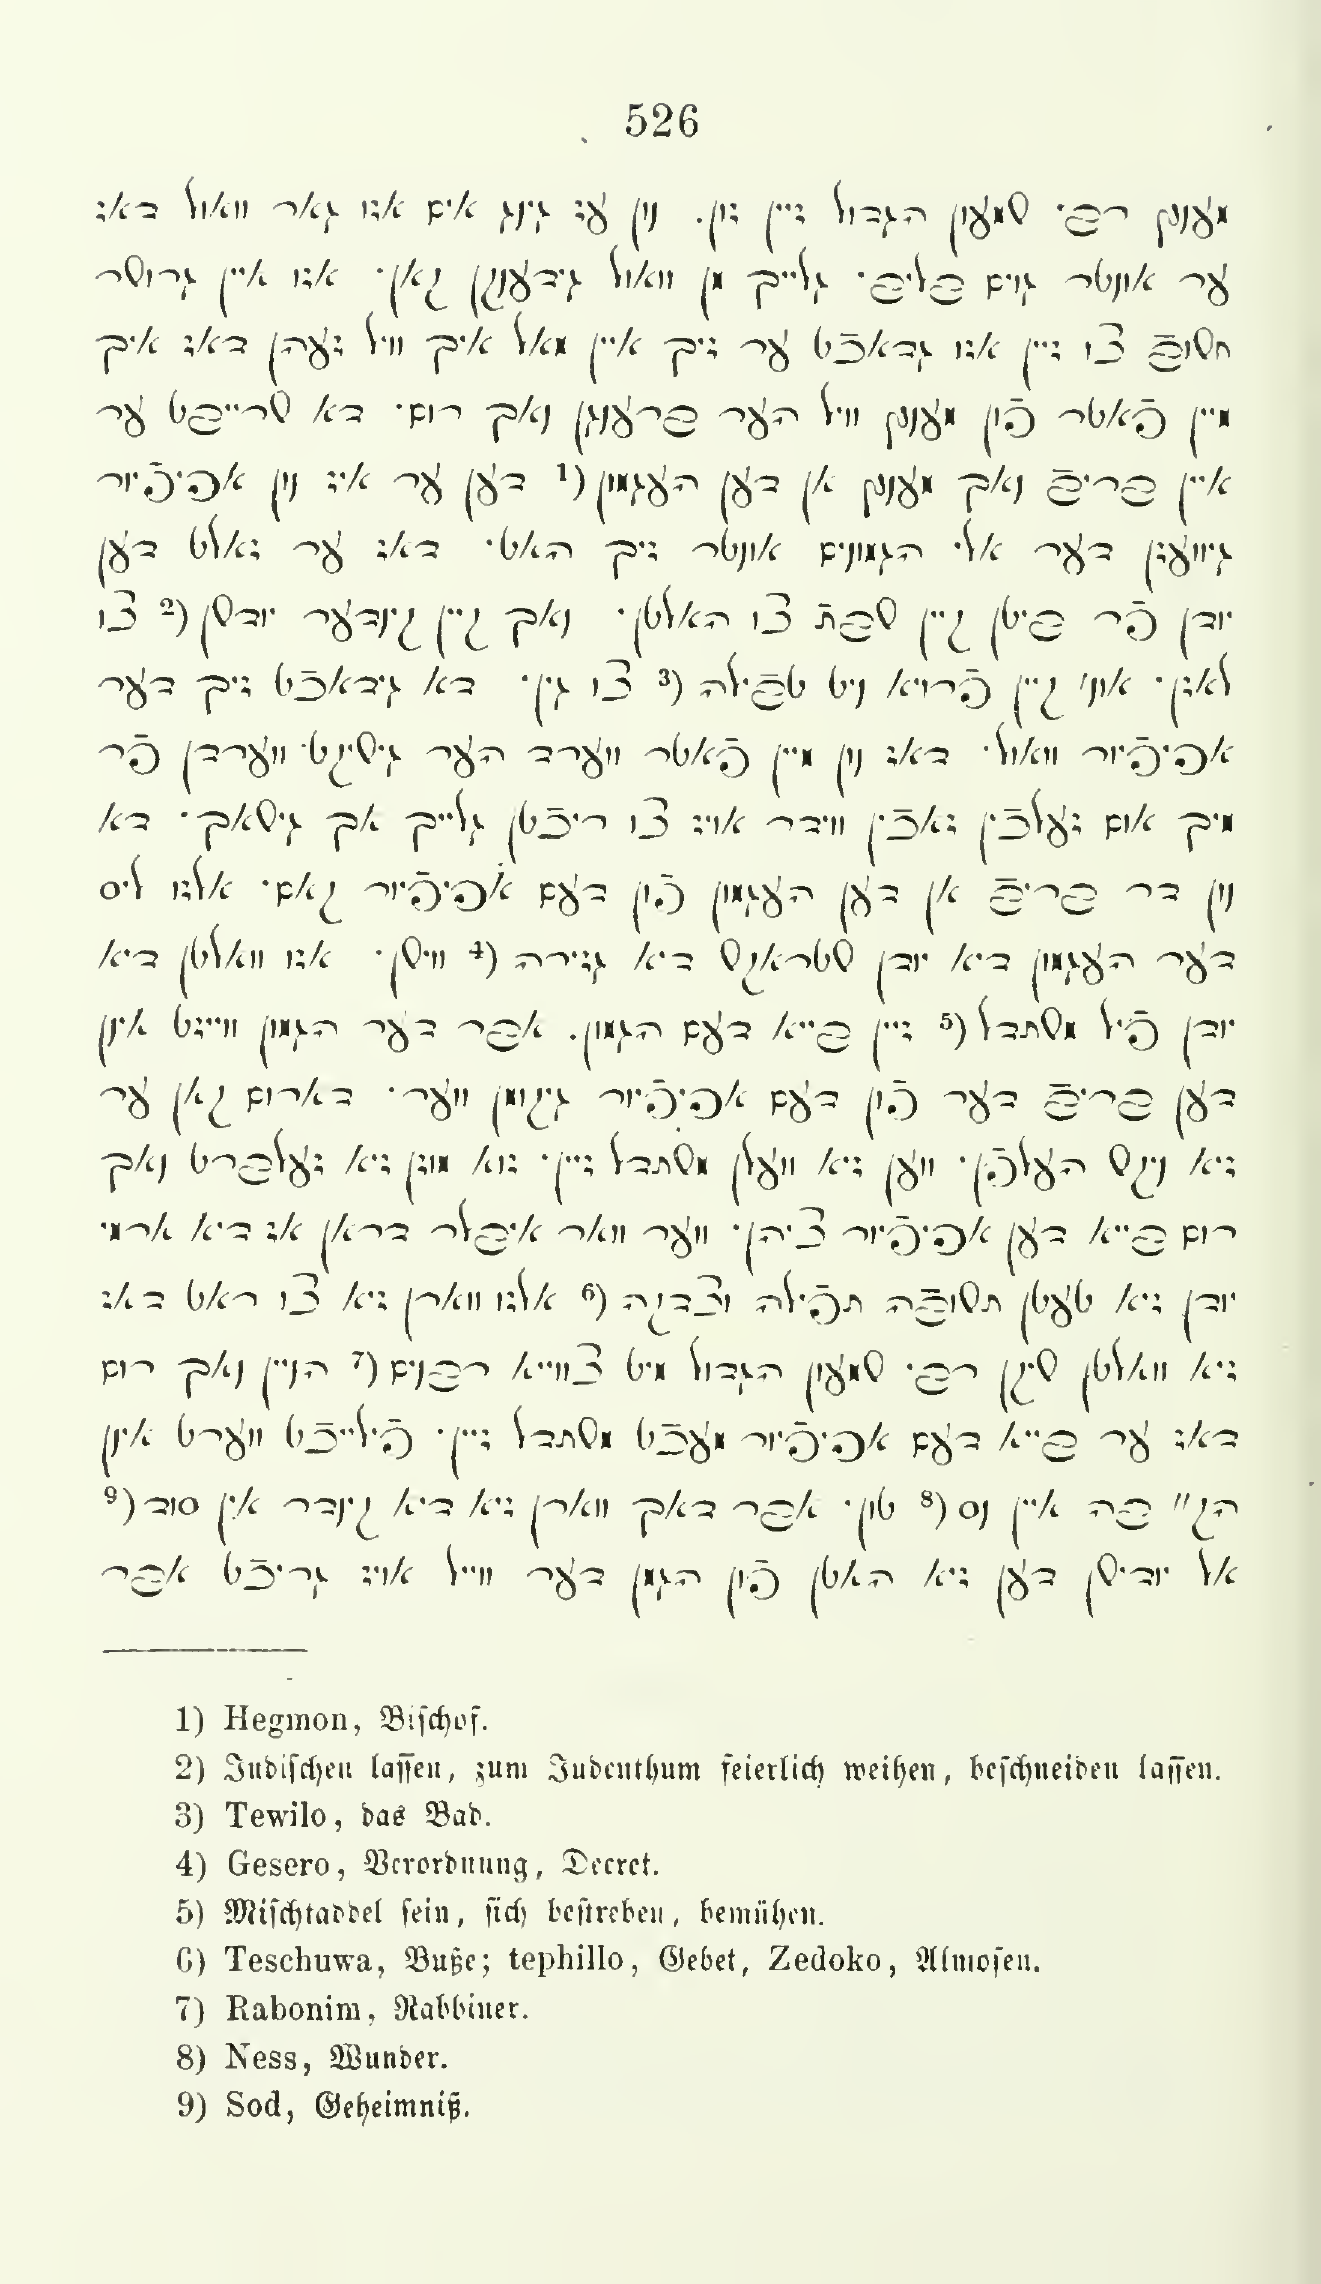 526
מענץ רבי שמעון הגדול זיין זון. נון עז גינג אים אזו גאר וואול דאז
ער אונטר גוים בליב· גלייך מן וואול גידענקן קאן· אזו איין גרושר
חשובֿ צו זיין אזו גדאכֿט ער זיך איין מאל איך וויל זעהן דאז איך
מיין פֿאטר פֿון מענץ וויל הער ברענגן נאך רום· דא שרייבט ער
איין בריבֿ נאך מענץ אן דען העגמון (1 דען ער איז נון אפיפֿיור
גיוועזן דער אלי הגמונים אונטר זיך האט· דאז ער זאלט דען
יודן פֿר ביטן קיין שבתֿ צו האלטן· נאך קיין קינדער יודשן (2 צו
לאזן· אונ' קיין פֿרויא ניט טבֿילה (3 צו גין· דא גידאכֿט זיך דער
אפיפֿיור וואול· דאז נון מיין פֿאטר ווערד הער גישיקט ווערדן פֿר
מיך אום זעלכֿין זאכֿין ווידר אויז צו ריכֿטן גלייך אך גישאך· דא
נון דר בריבֿ אן דען העגמון פֿון דעם אפיפֿיור קאם· אלזו ליס
דער העגמון דיא יודן שטראקש דיא גזירה (4 ווישן· אזו וואלטן דיא
יודן פֿיל משתדל (5 זיין בייא דעם הגמון. אבר דער הגמון ווייזט אינן
דען בריבֿ דער פֿון דעם אפיפֿיור גיקומן ווער· דארום קאן ער
זיא ניקש העלפֿן· ווען זיא וועלן משתדל זיין· זוא מוזן זיא זעלברט נאך
רום בייא דען אפיפֿיור ציהן· ווער וואר איבלר דראן אז דיא ארמי
יודן זיא טעטן תשובֿה תפֿילה וצדקה (6 אלזו ווארן זיא צו ראט דאז
זיא וואלטן שיקן רבי שמעון הגדול מיט צווייא רבנים (7 הניין נאך רום
דאז ער בייא דעם אפיפֿיור מעכֿט משתדל זיין· פֿילייכֿט ווערט אינן
הק״ בה איין נס (8 טון· אבר דאך ווארן זיא דיא קינדר אין סוד (9
אל יודישן דען זיא האטן פֿון הגמן דער ווייל אויז גריכֿט אבר
1) Hegmon, Bischof.
2) Judischen lassen, zum Judenthum feierlich weihen, beschneiden lassen.
3) Tewilo, das Bad.
4) Gesero, Verordnung, Decret.
5) Mischtaddel sein, sich bestreben, bemühen.
6) Teschuwa, Buße; tephillo, Gebet, Zedoko, Almosen.
7) Rabonim, Rabbiner.
8) Ness, Wunder.
9) Sod, Geheimniß.